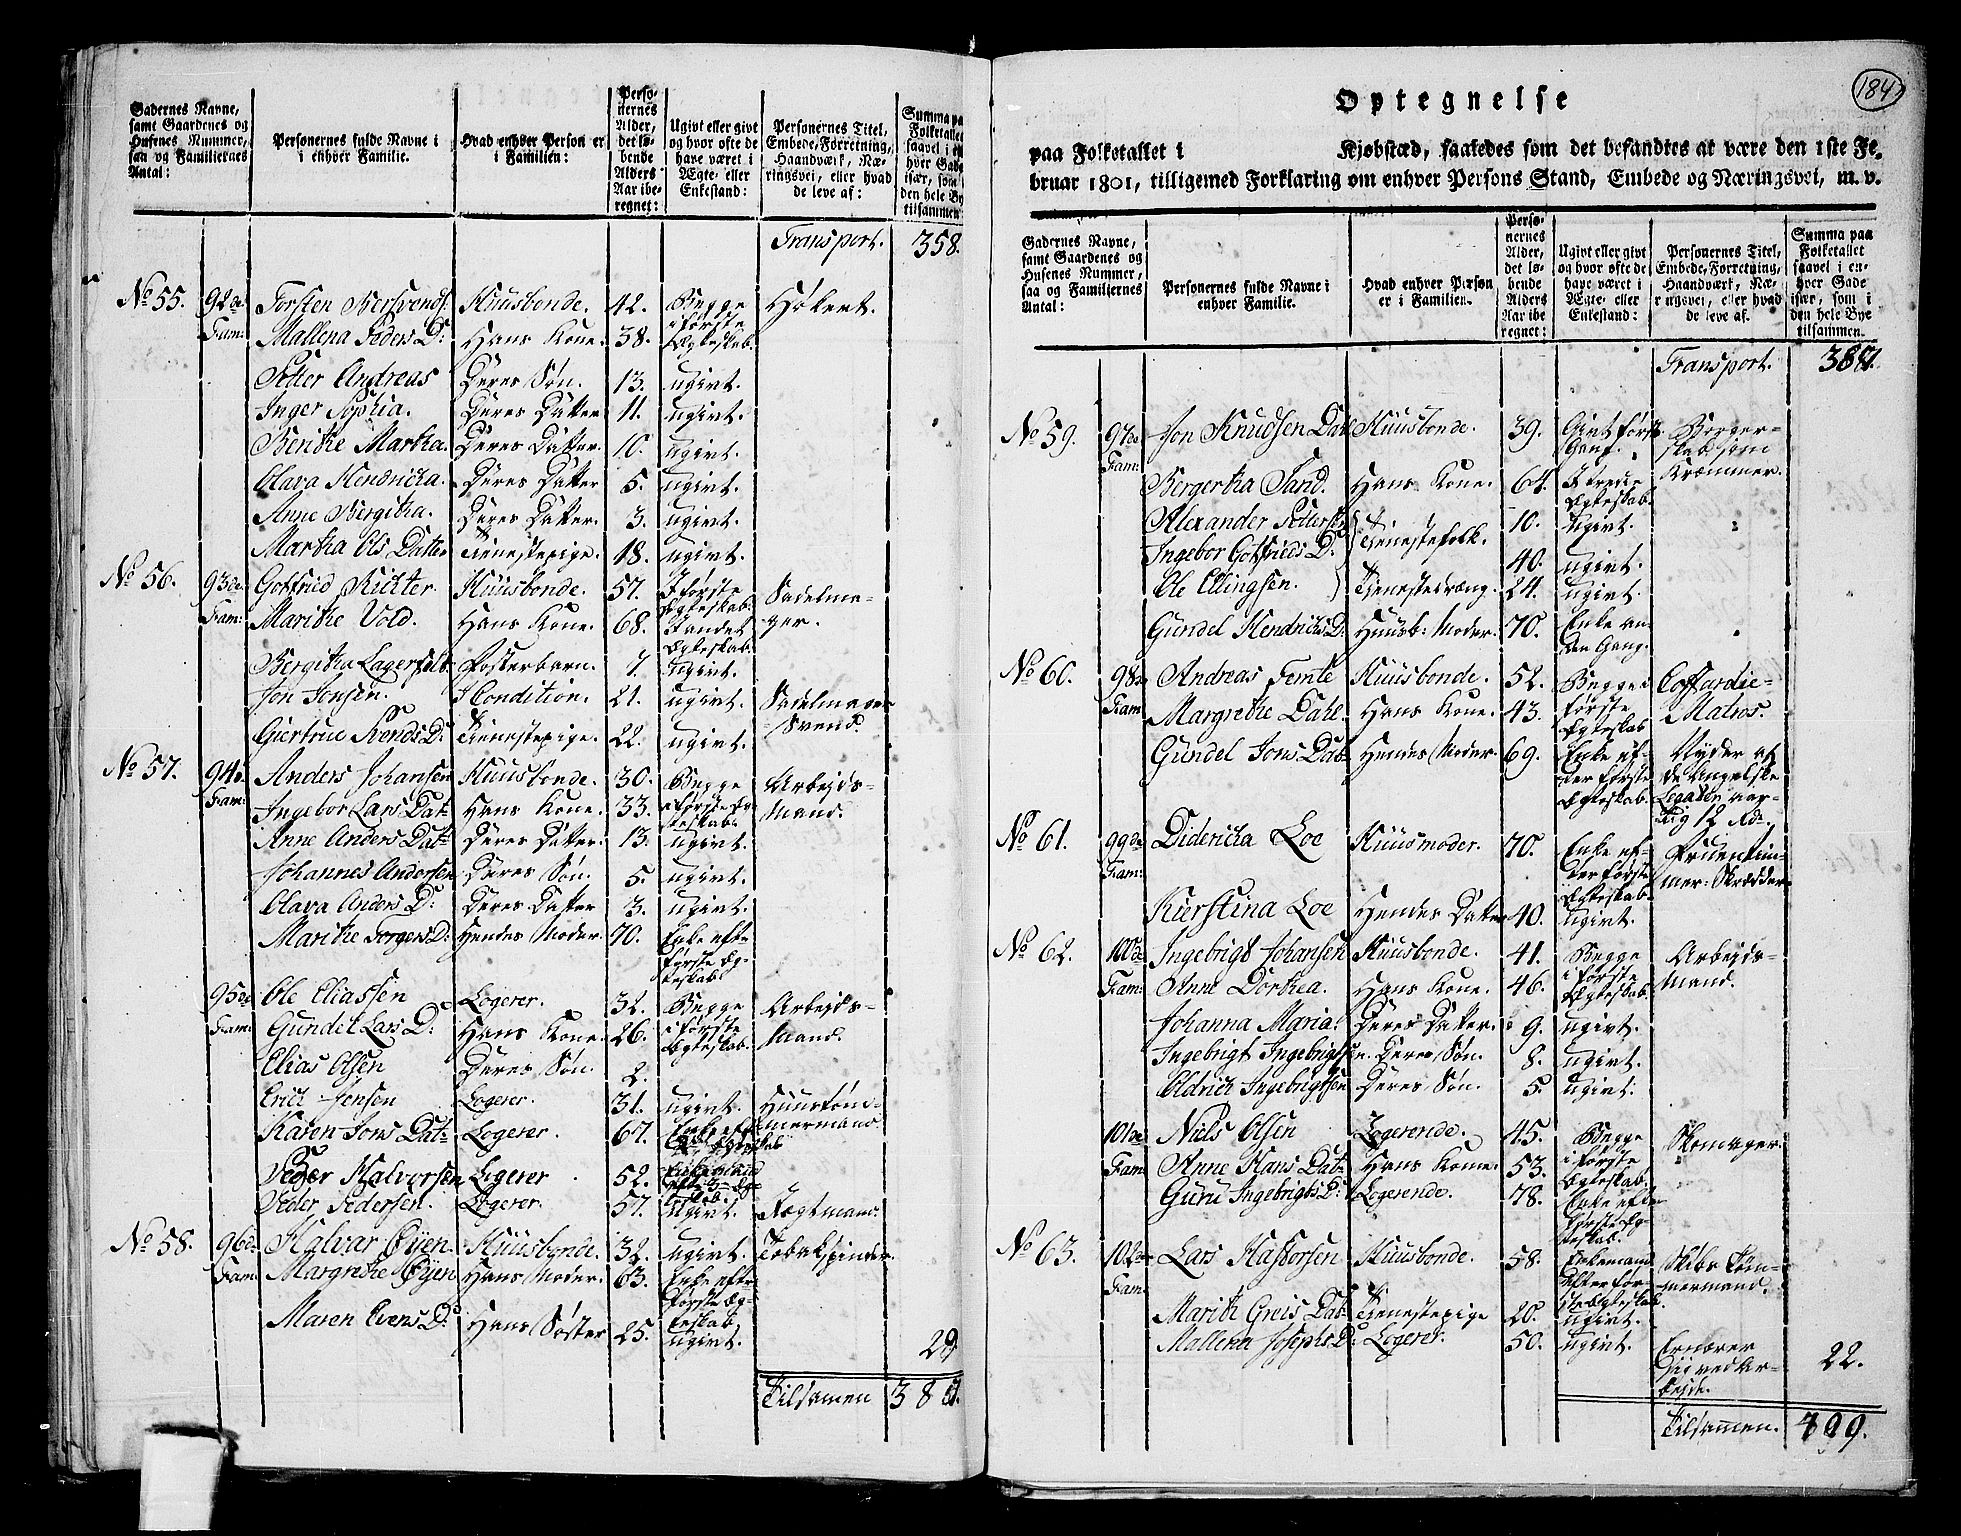 Gadernes Navne, samt Gaardenes og Husenes Nummer, saa og Familiernes Antal:
Personernes fulde Navne i i enhver Familie.
Hvad enhver Person er i Familien:
Personernes Alder, det løbende Alders Aar iberegnet:
Ugivt eller givt og hvor ofte de have været i Ægte- eller Enkestand:
Personernes Titel, Embede, Forretning, Haandværk, Næringsvei, eller hvad de leve af:
Summa paa Folketallet saavel i enhver Gade især, som i den hele Bye tilsammen
Transport. 358.
No 55. 92de Fam: Torsten Bersvends. Huusbonde. 42. Begge i første Ægteskab. Høkert.
Mallena Peders D: Hans Kone. 38.
Peter Andreas Deres Søn. 13. ugivt.
Inger Sophia. Deres Datter 11. ugivt.
Berithe Martha. Deres Datter. 10. ugivt.
Olava Hendricha. Deres Datter 5. ugivt.
Anne Bergitha. Deres Datter. 3. ugivt.
Martha Ols Datter Tienestepige. 18. ugivt.
No 56. 93de Fam: Gotfried Richter. Huusbonde. 57. I første Ægteskab. Sadelmager.
Marithe Vold. Hans Kone. 68. I andet Ægteskab.
Bergitha Posterbarn. 7. ugivt.
Jon Jonsen. I Condition. 21. ugivt. Sadelmager Svend.
Giertrue Svends D: Tienestepige. 22. ugivt.
No 57. 94de Fam: Anders Johansen Huusbonde. 30. Begge i første Ægteskab. Arbejdsmand.
Ingebor Lars Dat: Hans Kone. 33.
Anne Anders Dat: Deres Datter. 13. ugivt.
Johannes Andersen Deres Søn. 5. ugivt.
Olava Anders D: Deres Datter 3. ugivt.
Marithe Torgers D: Hendes Moder. 70. Enke efter første Ægteskab
95de Fam: Ole Eliassen Logerer. 32. Begge i første Ægteskab. Arbejdsmand.
Gundel Lars D: Hans Kone. 26.
Elias Olsen Deres Søn. 2.
Erich Jensen Logerer. 31. ugivt. Huustømmermand.
Karen Jons Dat: Logerer. 67. Enke
Peder Halvorsen Logerer 52. Enkemand
Peder Pedersen. Logerer. 57. ugivt. Jægtmand.
No 58. 96de Fam: Halvar Øyen. Huusbonde. 32. ugivt. Tobakspinder.
Margrethe Øyen Hans Moder. 63. Enke efter første Ægteskab
Maren Evens D: Hans Søster 25. ugivt.
29
Tilsamen 387.
184
Optegnelse
paa Folketallet i Kjøbstæd, saaledes som det befandtes at være den 1ste Februar 1801, tilligemed Forklaring om enhver Persons Stand, Embede og Næringsvei, m. v.
Gadernes Navne, samt Gaardenes og Husenes Nummer, saa og Familjernes Antal:
Personernes fulde Navne i enhver Familie.
Hvad enhver Person er i Familien.
Personernes Alder, det løbende Alders Aar iberegnet:
Ugivt eller givt og hvor ofte de have været i Ægte- eller Enkestand:
Personernes Titel, Embede, Forretning, Haandværk, Næringsvei, eller hvad de leve af.
Summa paa Folketallet saavel i enhver Gade især, som i den hele Bye tilsammen.
Transport. 387.
No 59. 97de Fam: Jon Knudsen Dahl Huusbonde. 39. Givt første Gang. Borgerskab som Kræmmer.
Bergertha Sand. Hans Kone. 64. I tredie Ægteskab.
Alexander Peders. Tienestefolk. 10. ugivt.
Ingebor Gotfrieds D: 40. ugivt.
Ole Ellingsen. Tienestedræng. 24. ugivt.
Gundel Hendrichs D: Huusb: Moder. 70. Enke anden Gang.
No 60. 98de Fam Andreas Femte Huusbonde. 52. Begge i første Ægteskab Coffardie-Matros.
Margrethe Dahl. Hans Kone. 43.
Gundel Jons Dat: Hendes Moder 69. Enke efter første Ægteskab. Nyder af de Angelske Legater aarlig 12 Rd.
No 61. 99de Fam: Didericha Loe Huusmoder. 70. Enke efter første Ægteskab. Fruentimmer-Skrædder
Kierstina Loe Hendes Datter 40. ugivt.
No 62. 100de Fam: Ingebrigt Johansen Huusbonde. 41. Begge i første Ægteskab. Arbejdsmand.
Anne Dorthea. Hans Kone. 46.
Johanna Maria. Deres Datter. 9. ugivt.
Ingebrigt Ingebrigtsen. Deres Søn. 8. ugivt.
Oldrich Ingebrigtsen Deres Søn. 5. ugivt.
101de Fam: Niels Olsen Logerende. 45. Begge i første Ægteskab. Skomager.
Anne Hans Dat: Hans Kone. 53.
Guru Ingebrigts D: Logerende. 78. Enke efter første Ægteskab.
No 63. 102de Fam: Lars Hastorsen Huusbonde. 58. Enkemand efter første Ægteskab. Skibs Tømmermand.
Marith Greis Dat: Tienestepige 20. ugivt.
Mallena Josephs D: Logerer. 50. ugivt. Ernærer sig ved Arbejde.
22.
Tilsammen. 409.